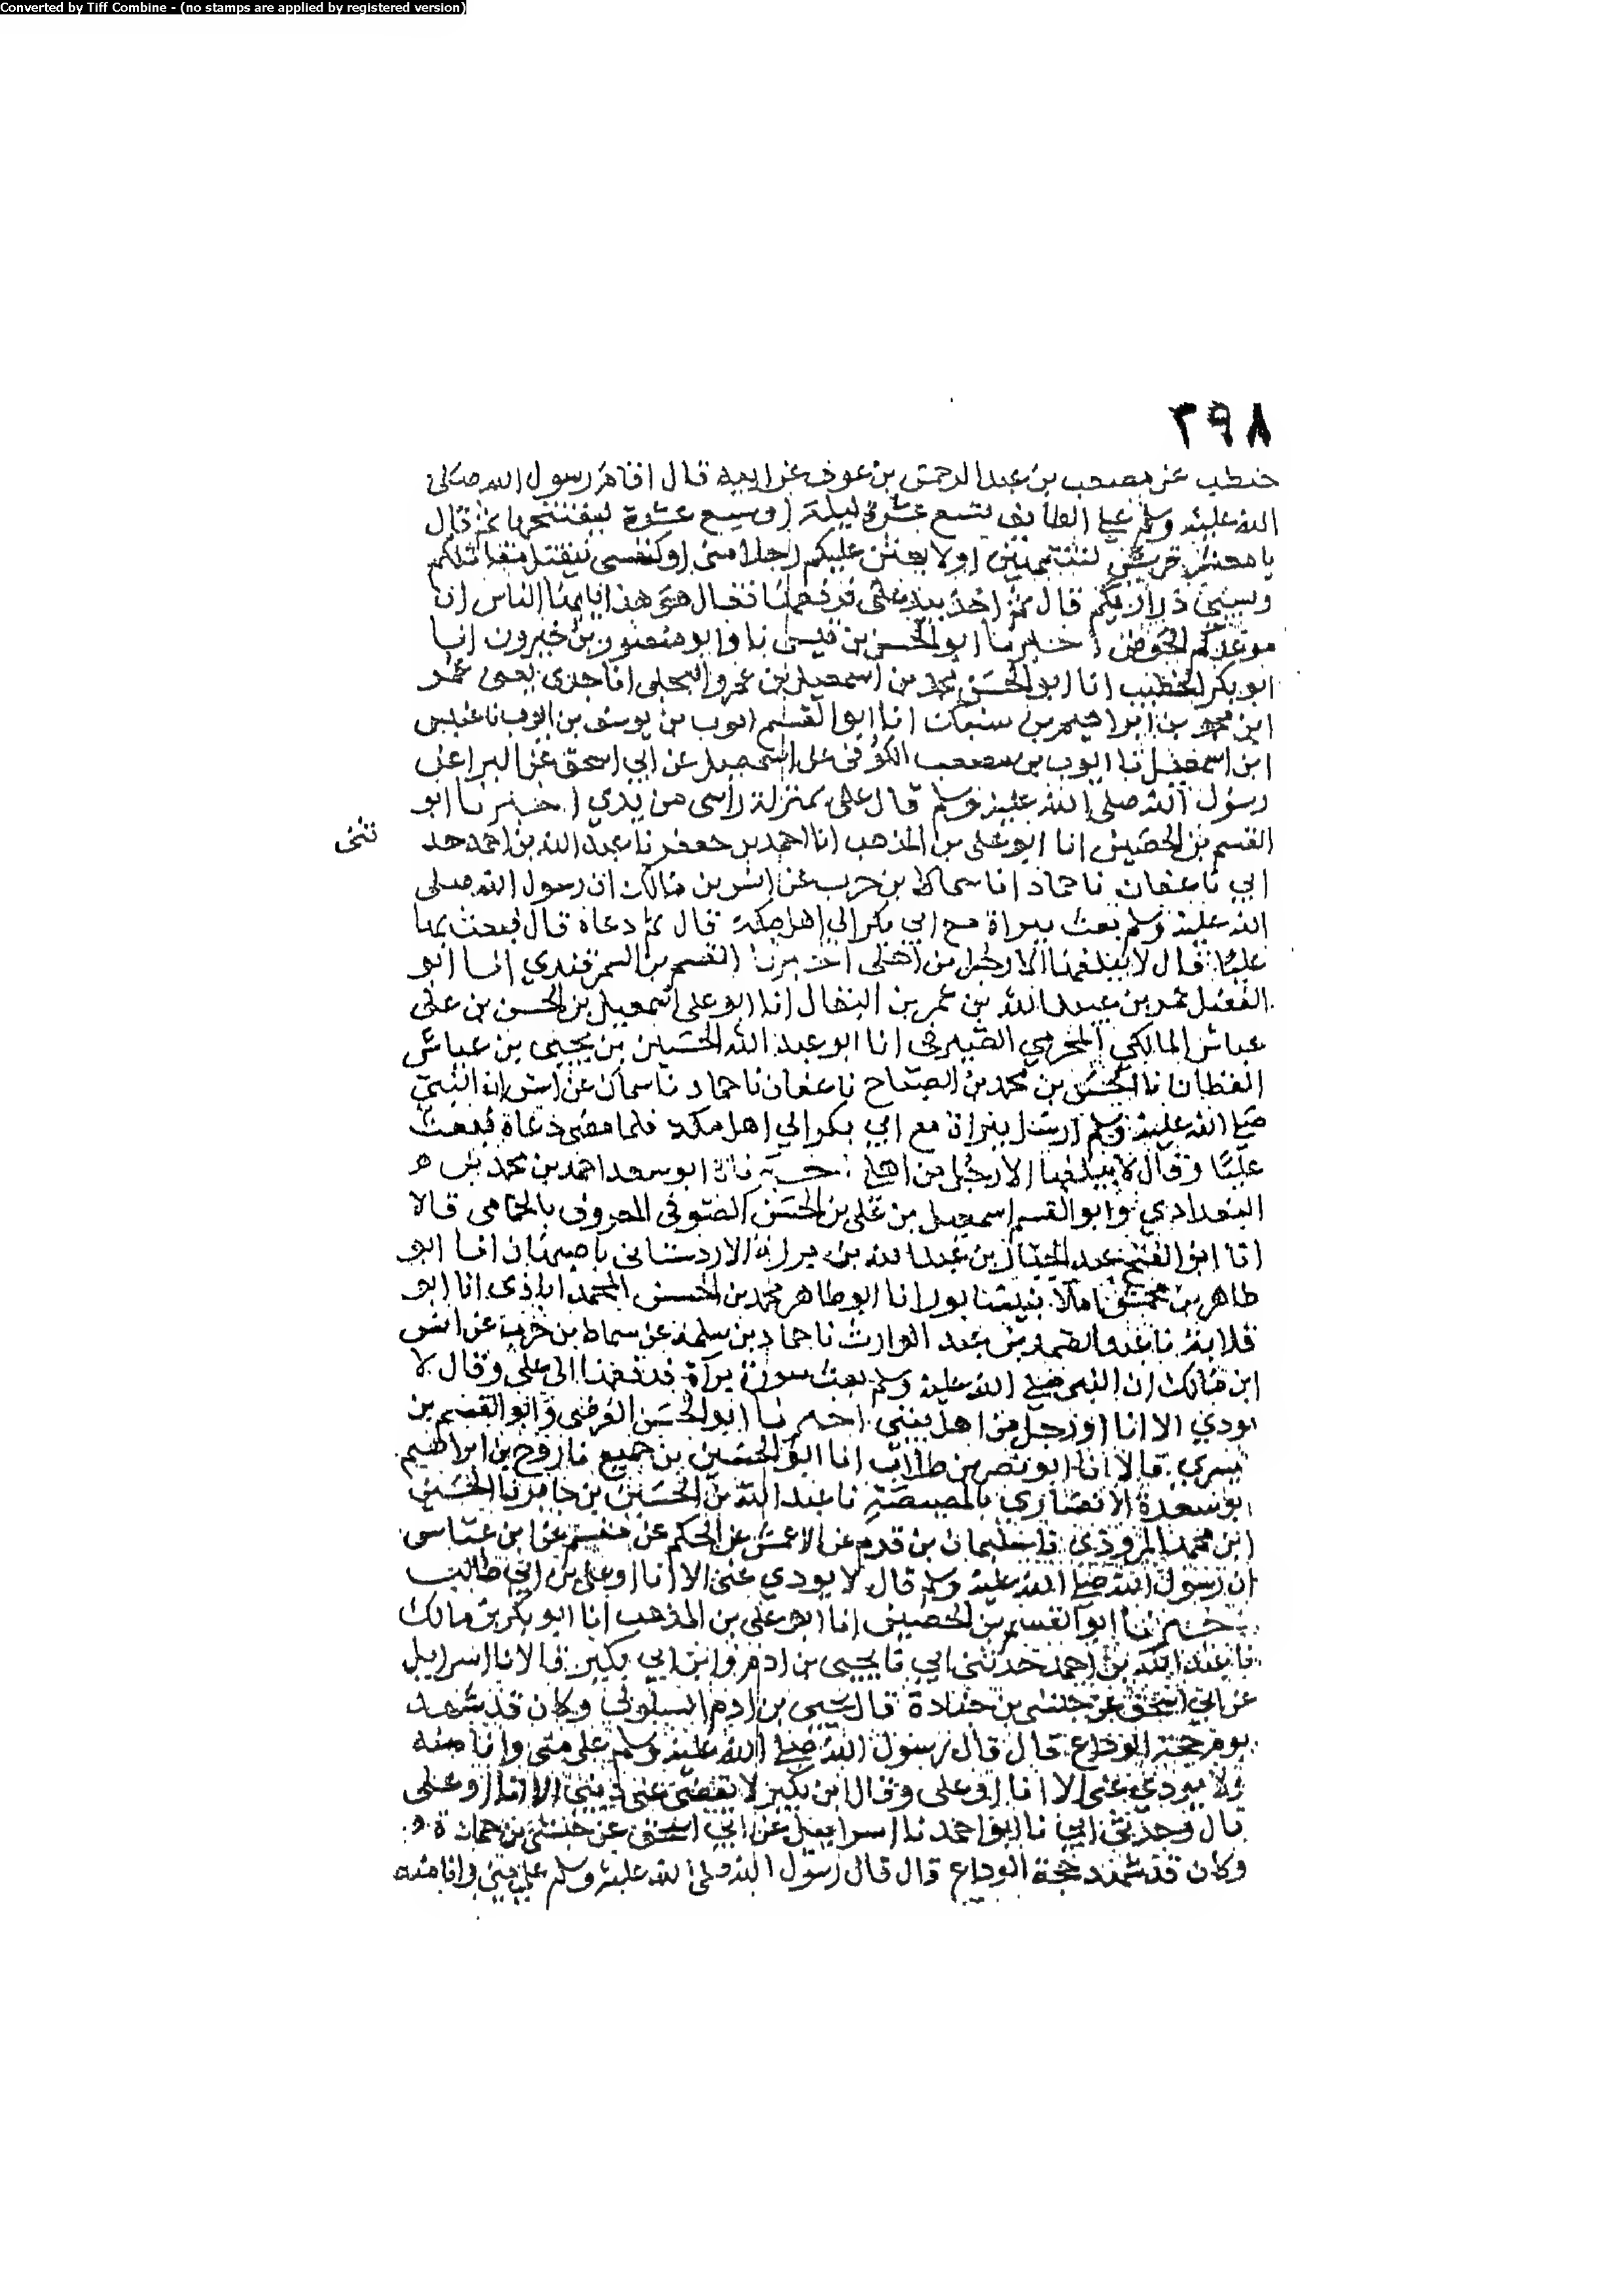 Converted by Tiff Combine - (no stamps are applied by registered version)
٣٩٨
حنطب عن مصعب بن عبد الرحمن بن عوف عن ابيه قال اقام رسول الله صلى
الله عليه وسلم على الطايف تسع عشرة ليلة او سبع عشرة ليفتتحها ثم قال
يا معشر قريش لتنتهين او لابعثن عليكم رجلا مني او كنفسي فيقتل مقاتلتكم
وسبي ذراريكم قال ثم اخذ بيد علي فرفعها فقال هو هذا يايها الناس ان
موعدكم الحوض اخبرنا ابو الحسن بن قبيس نا وابو منصور بن خيرون انا
ابو بكر الخطيب انا ابو الحسن محمد بن اسمعيل بن عمرو البجلي انا جدي يعني عمر
ابن محمد بن ابراهيم بن سنبك انا ابو القسم ايوب بن يوسف بن ايوب نا عنبس
ابن اسمعيل نا ايوب بن مصعب الكوفي عن اسمعيل عن ابي اسحق عن البرا عن
رسول الله صلى الله عليه وسلم قال علي بمنزلة رأسي من بدني اخبرنا ابو
القسم بن الحصين انا ابو علي بن المذهب انا احمد بن جعفر نا عبد الله بن احمد حد
ثني
ابي نا عفان نا حماد انا سماك بن حرب عن انس بن مالك ان رسول الله صلى
الله عليه وسلم بعث ببراة مع ابي بكر الى اهل مكة قال ثم دعاه قال فبعث بها
عليا قال لا يبلغها الا رجل من اهلي اخبرنا القسم بن السمرقندي انا ابو
الفضل عمر بن عبيد الله بن عمر بن البقال انا ابو علي اسمعيل بن الحسن بن علي
عباس المالكي المخرمي الصيرفي انا ابو عبد الله الحسين بن يحيى بن عباش
القطان نا الحسن بن محمد بن الصباح نا عفان نا حماد نا سماك عن انس ان النبي
صلى الله عليه وسلم ارسل ببراة مع ابي بكر الى اهل مكة فلما مضى دعاه فبعث
عليا وقال لا يبلغها الا رجل من اهلي اخبرنا ابو سعد احمد بن محمد بن
البغدادي وابو القسم اسمعيل بن علي بن الحسن الصوفي المعروف بالحمامي قالا
انا ابو الفتح عبد الجبار بن عبد الله بن برزة الاردستاني باصبهان انا ابو
طاهر بن محمش املا بنيسابور انا ابو طاهر محمد بن الحسن المحمداباذي انا ابو
قلابة نا عبد الصمد بن عبد الوارث نا حماد بن سلمة عن سماك بن حرب عن انس
ابن مالك ان النبي صلى الله عليه وسلم بعث سورة براة فدفعها الى علي وقال لا
يودي الا انا او رجل من اهل بيتي اخبرنا ابو الحسن الفرضي وابو القسم بن
يسري قالا انا ابو نصر بن طلاب انا ابو الحسين بن جميع نا روح بن ابراهيم
ابو سعدة الانصاري بالمصيصة نا عبد الله بن الحسين بن جابر نا الحسين
ابن محمد المروذي نا سليمان بن قرم عن الاعمش عن الحكم عن مقسم عن ابن عباس
ان رسول الله صلى الله عليه وسلم قال لا يودي عني الا انا او علي بن ابي طالب
اخبرنا ابو القسم بن الحصين انا ابو علي بن المذهب انا ابو بكر بن مالك
نا عبد الله بن احمد حدثني ابي نا يحيى بن ادم وابن ابي بكير قالا نا اسرايل
عن ابي اسحق عن حبشي بن جنادة قال يحيى بن ادم السلولي وكان قد شهد
يوم حجة الوداع قال قال رسول الله صلى الله عليه وسلم علي مني وانا منه
ولا يودي عني الا انا او علي وقال ابن بكير لا يقضي عني ديني الا انا او علي
قال وحدثني ابي نا ابو احمد نا اسراييل عن ابي اسحق عن حبشي بن جنادة
وكان قد شهد حجة الوداع قال قال رسول الله صلى الله عليه وسلم علي مني وانا منه